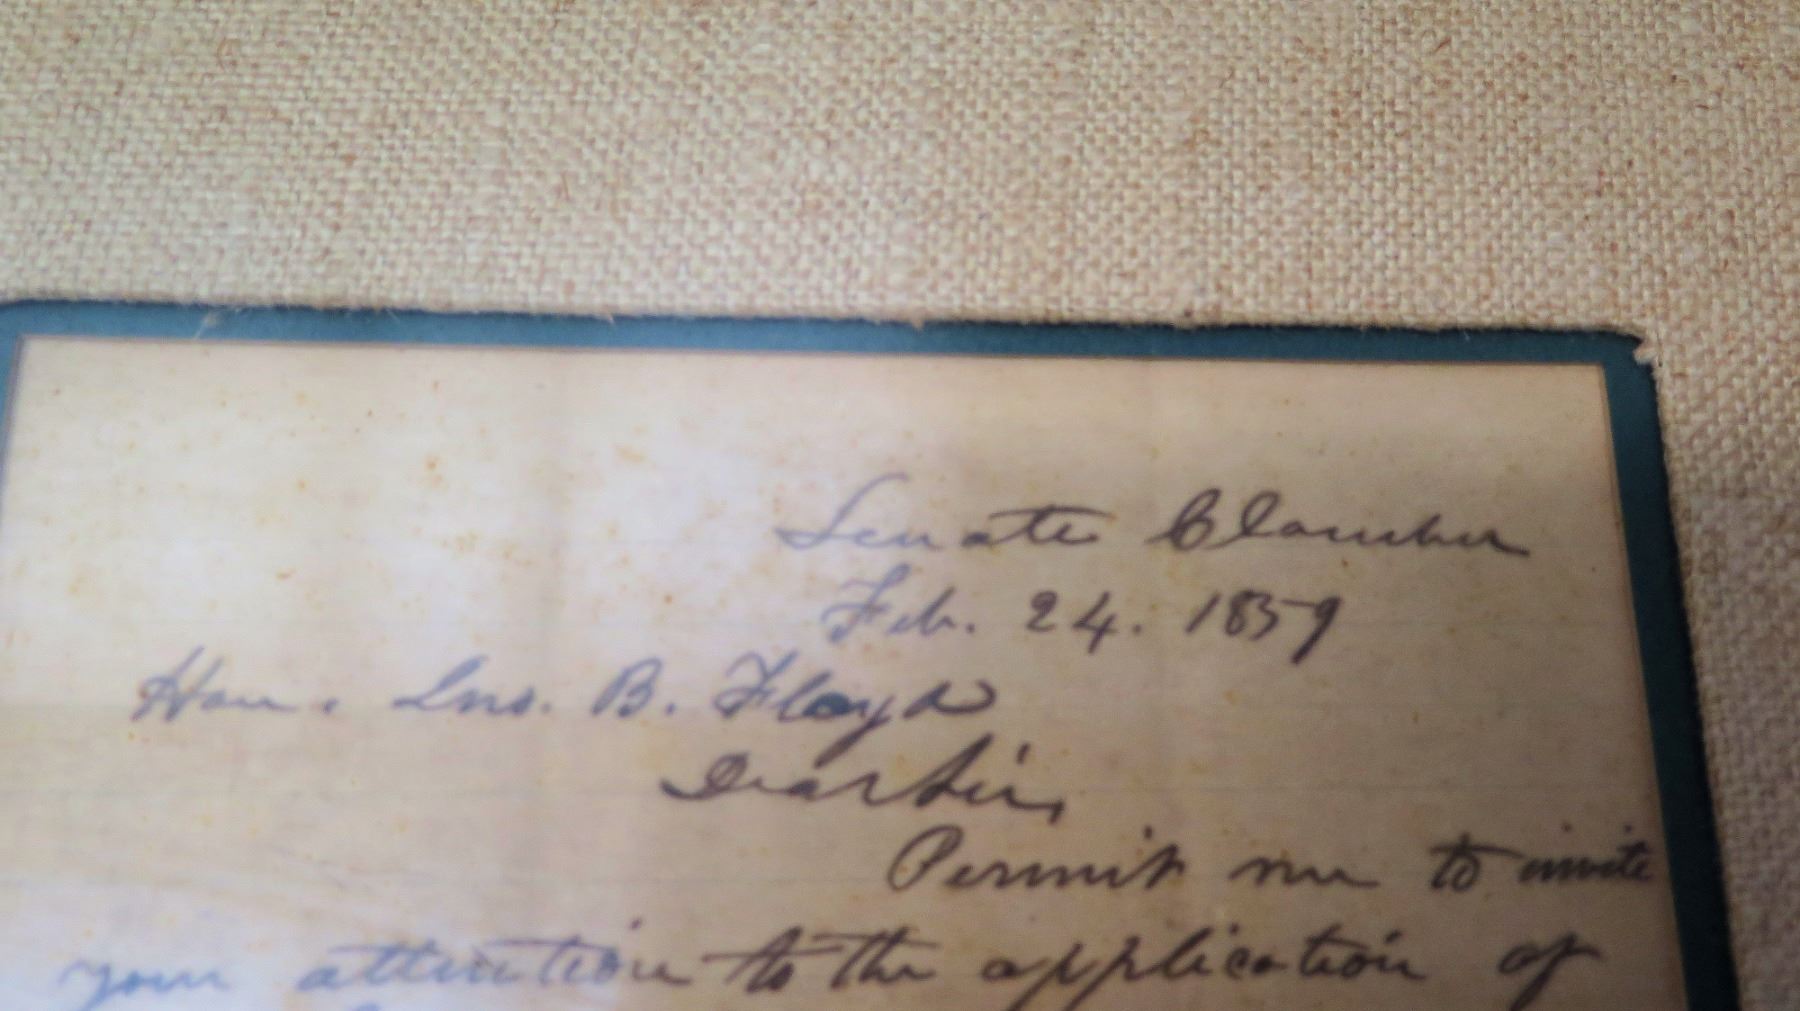 Senate Chamber
Feb. 24. 1859
Hon. Jno. B. Floyd
Dear Sir,
Permit me to invite
your attention to the application of